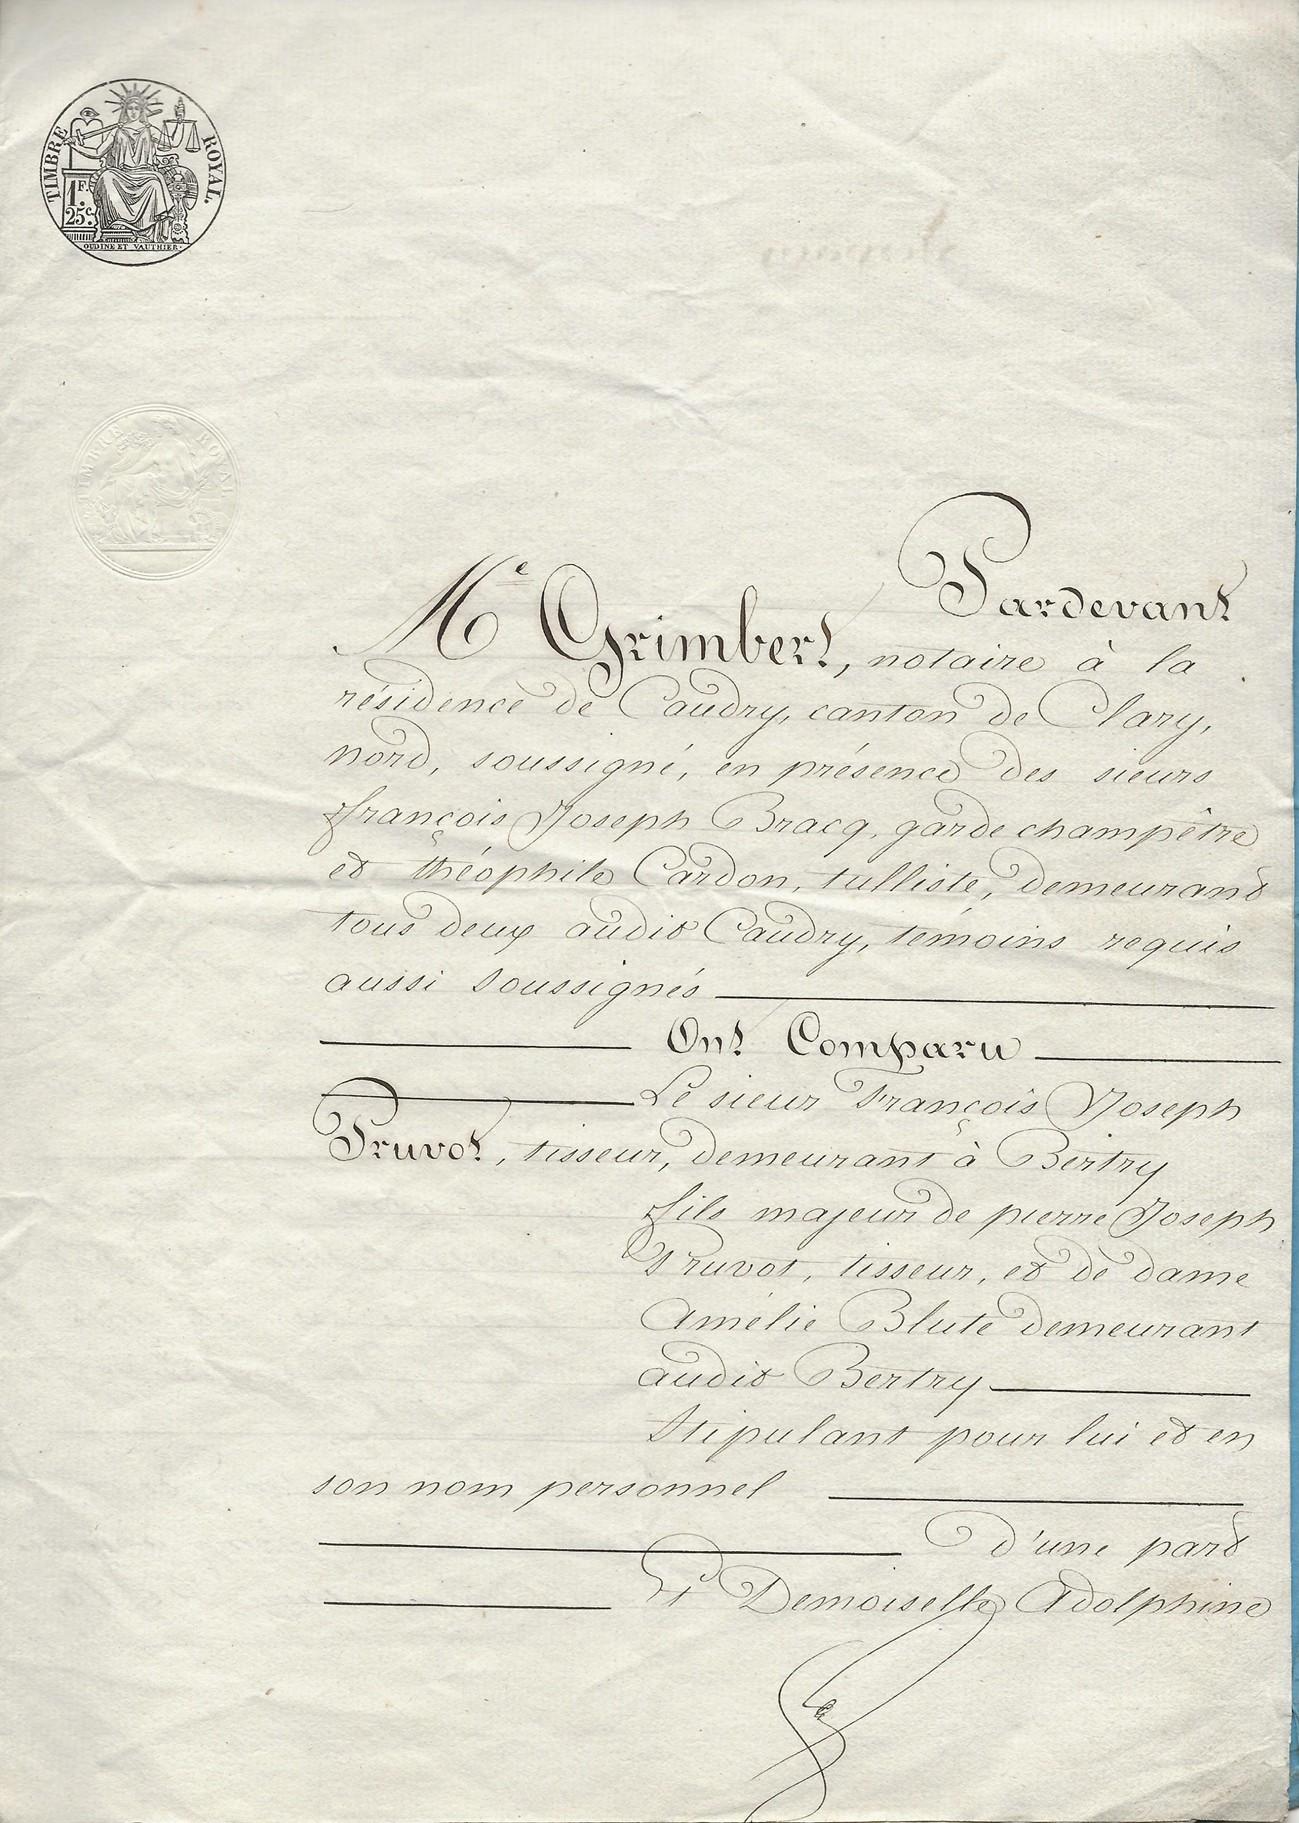 TIMBRE ROYAL.
1 F.
25 c.
OUDINE ET VAUTHIER.
TIMBRE ROYAL
Pardevant
Me Grimbert, notaire à la
résidence de Caudry, canton de Clary,
nord, soussigné, en présence des sieurs
françois Joseph Bracq, garde champêtre
et théophile Cardon, tulliste, demeurant
tous deux audit Caudry, témoins requis
aussi soussignés
Ont Comparu
Le sieur François Joseph
Pruvot, tisseur, demeurant à Bertry
fils majeur de pierre Joseph
Pruvot, tisseur, et de dame
Amélie Blute demeurant
audit Bertry
Stipulant pour lui et en
son nom personnel
d'une part
Et Demoiselle Adolphine